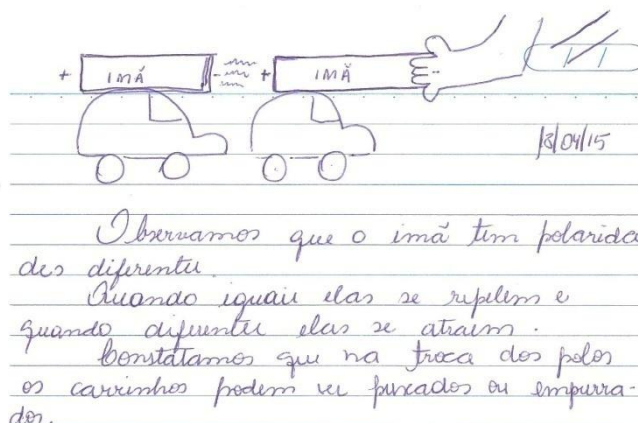 + IMÃ - + IMÃ
18/04/15
Observamos que o imã tem polarida
des diferentes.
Quando iguais elas se repelem e
quando diferentes elas se atraem.
Constatamos que na troca dos polos
os carrinhos podem ser puxados ou empurra-
dos.